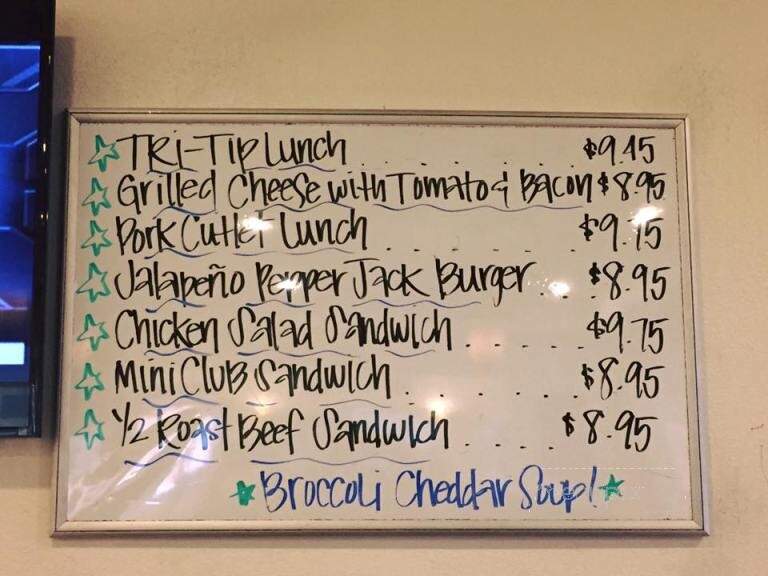 Tri-Tip Lunch . . . . . $9.45
Grilled Cheese with Tomato & Bacon $8.95
Pork Cutlet Lunch . . . . . . $9.75
Jalapeño Pepper Jack Burger . . $8.95
Chicken Salad Sandwich . . . . . $9.75
Mini Club Sandwich . . . . . . $8.95
1/2 Roast Beef Sandwich . . . . $8.95
Broccoli Cheddar Soup!